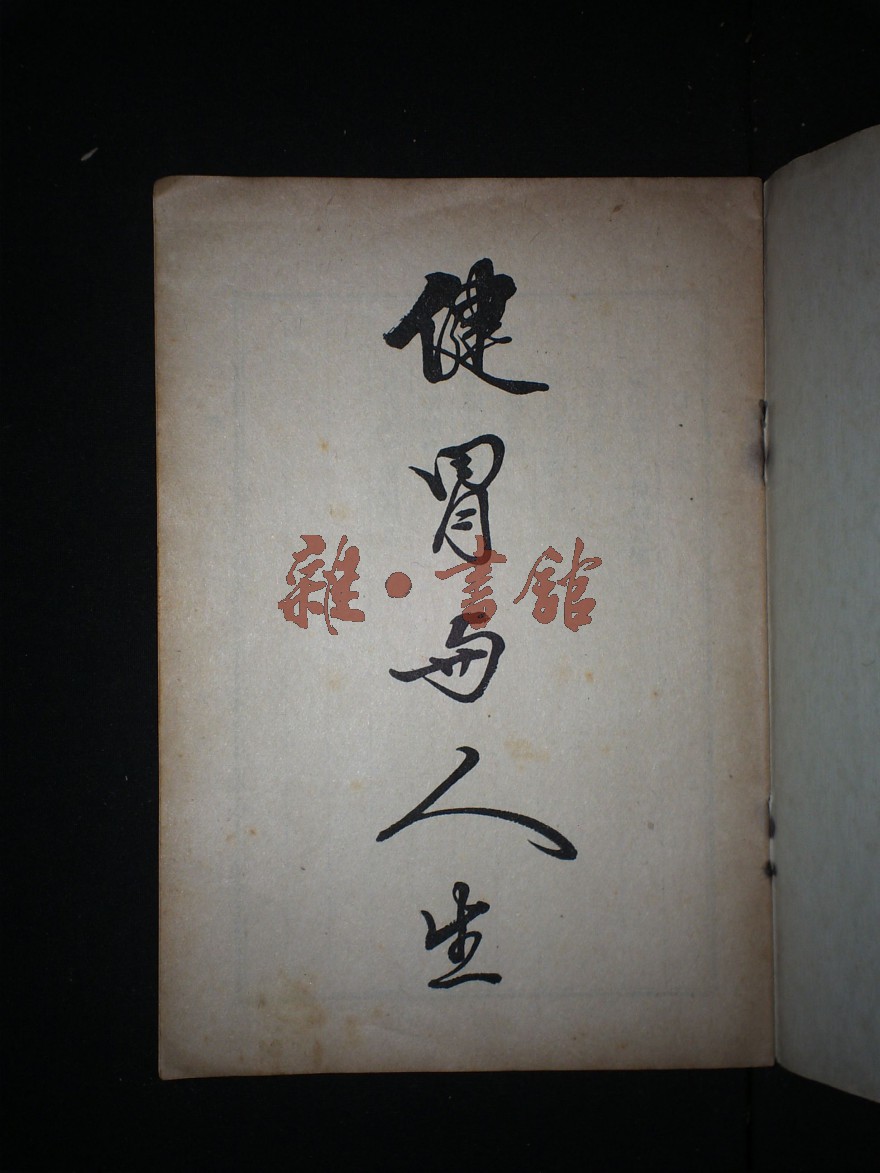 健胃与人生
雜·書館